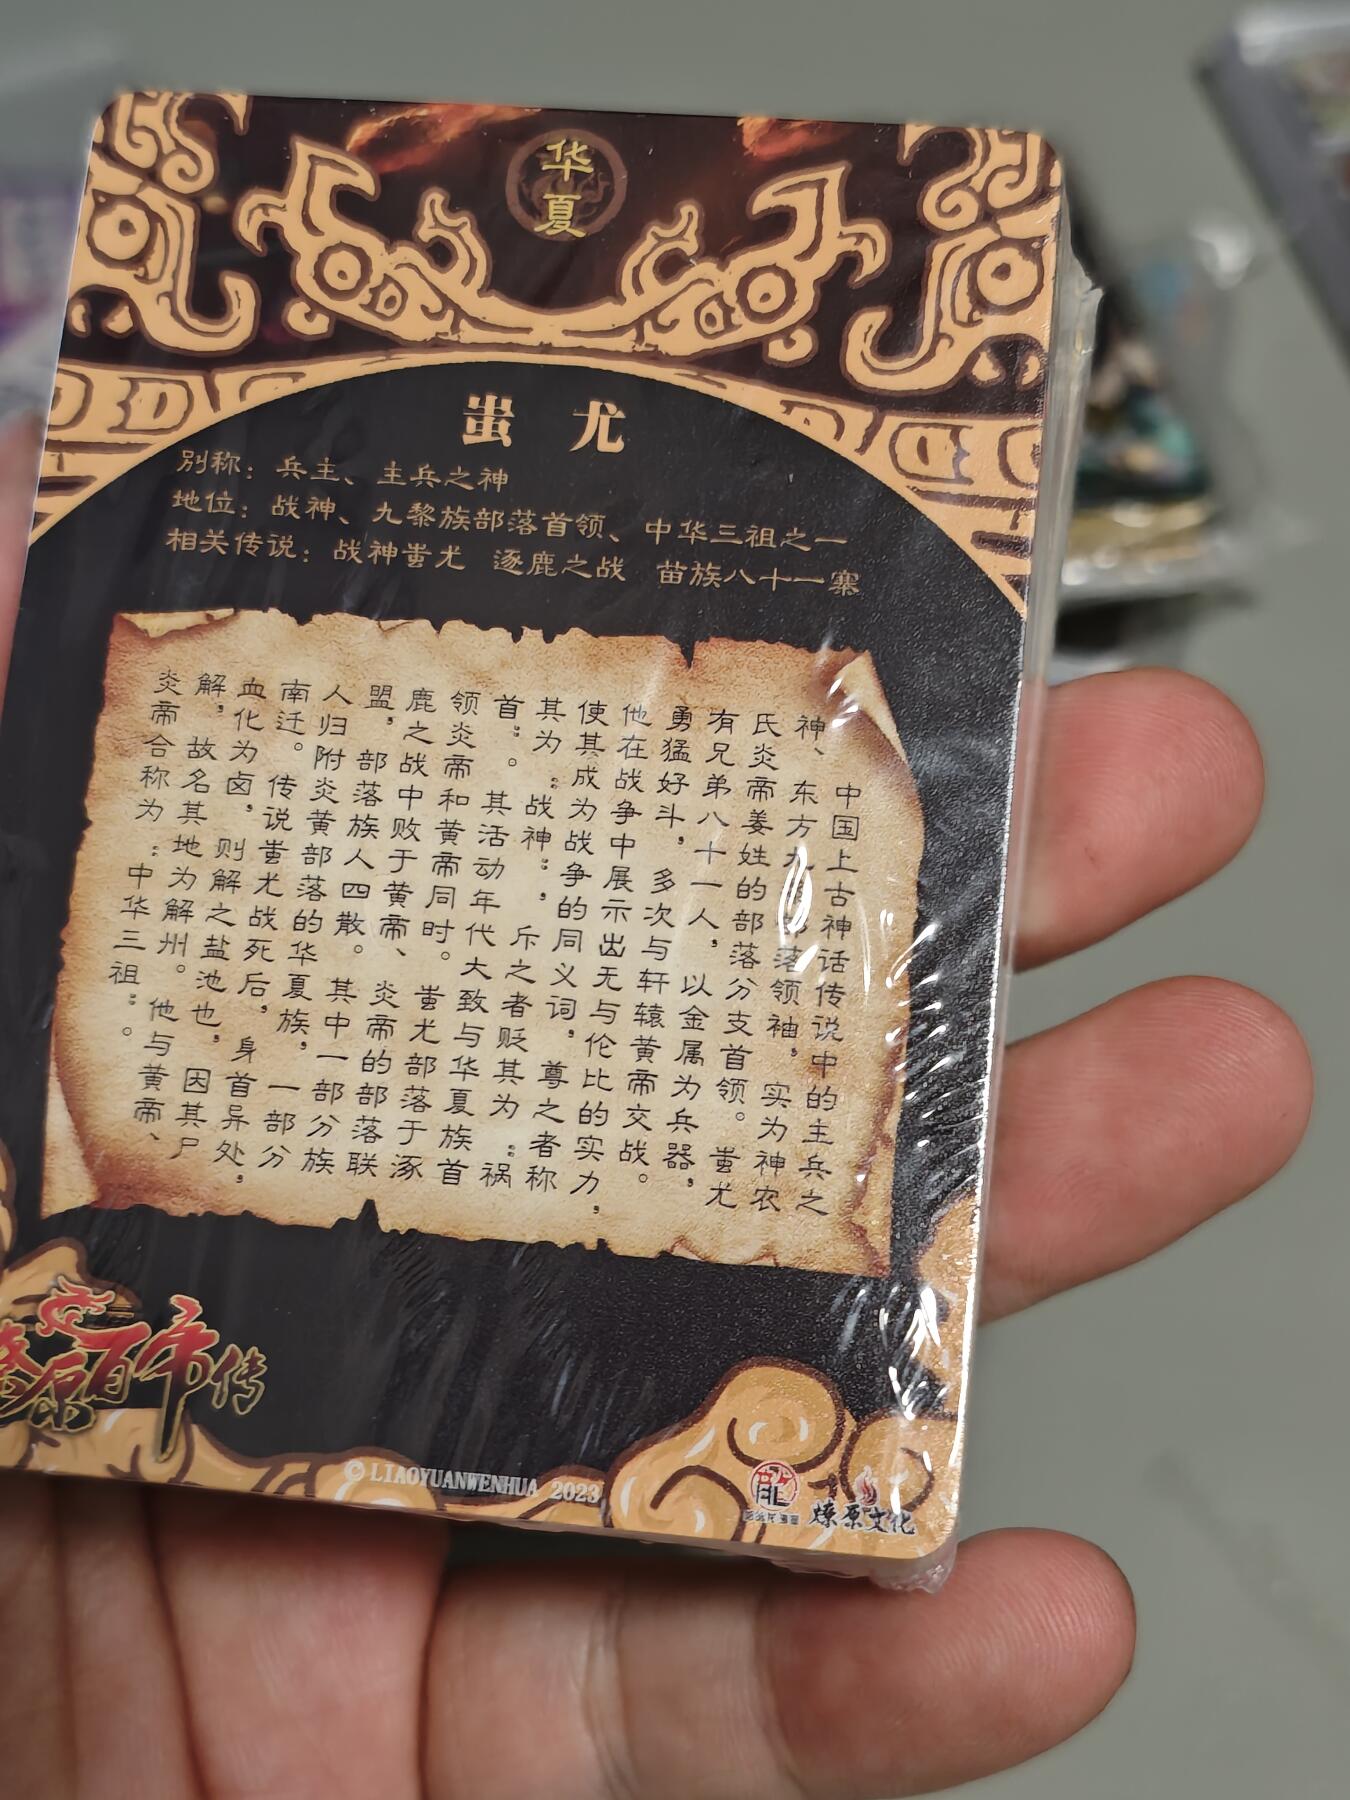 华
夏
蚩尤
别称：兵主、主兵之神
地位：战神、九黎族部落首领、中华三祖之一
相关传说：战神蚩尤 逐鹿之战 苗族八十一寨
中国上古神话传说中的主兵之
神、东方九部落领袖，实为神农
氏炎帝姜姓的部落分支首领。蚩尤
有兄弟八十一人，以金属为兵器，
勇猛好斗，多次与轩辕黄帝交战。
他在战争中展示出无与伦比的实力，
使其成为战争的同义词，尊之者称
其为“战神”，斥之者贬其为“祸
首”。其活动年代大致与华夏族首
领炎帝和黄帝同时。蚩尤部落于涿
鹿之战中败于黄帝、炎帝的部落联
盟，部落族人四散。其中一部分族
人归附炎黄部落的华夏族，一部分
南迁。传说蚩尤战死后，身首异处，
血化为卤，则解之盐池也，因其尸
解，故名其地为解州。他与黄帝、
炎帝合称为“中华三祖”。
燎原百帝传
© LIAOYUANWENHUA 2023
龍
燎原文化